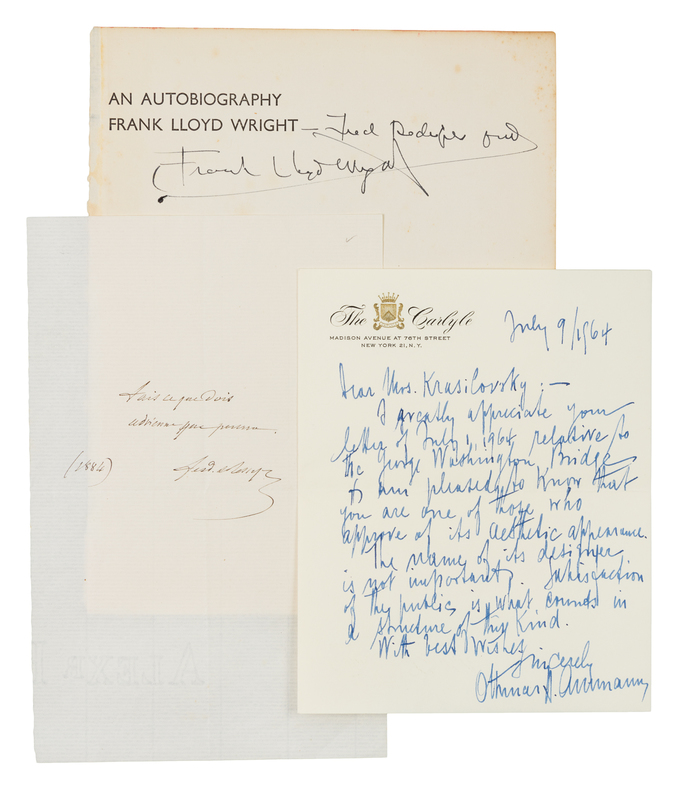 AN AUTOBIOGRAPHY
FRANK LLOYD WRIGHT — Fred
Frank Lloyd Wright
Fais ce que dois
advienne que pourra.
(1884)
Ferd. de Lesseps
The Carlyle
MADISON AVENUE AT 76TH STREET
NEW YORK 21, N.Y.
July 9/1964
Dear Mrs. Krasilovsky: —
I greatly appreciate your
letter of July 1, 1964 relative to
the George Washington Bridge
I am pleased to know that
you are one of those who
approve of its aesthetic appearance.
The name of its designer
is not important. Satisfaction
of the public is what counts in
a structure of this kind.
With best wishes
Sincerely
Othmar H. Ammann